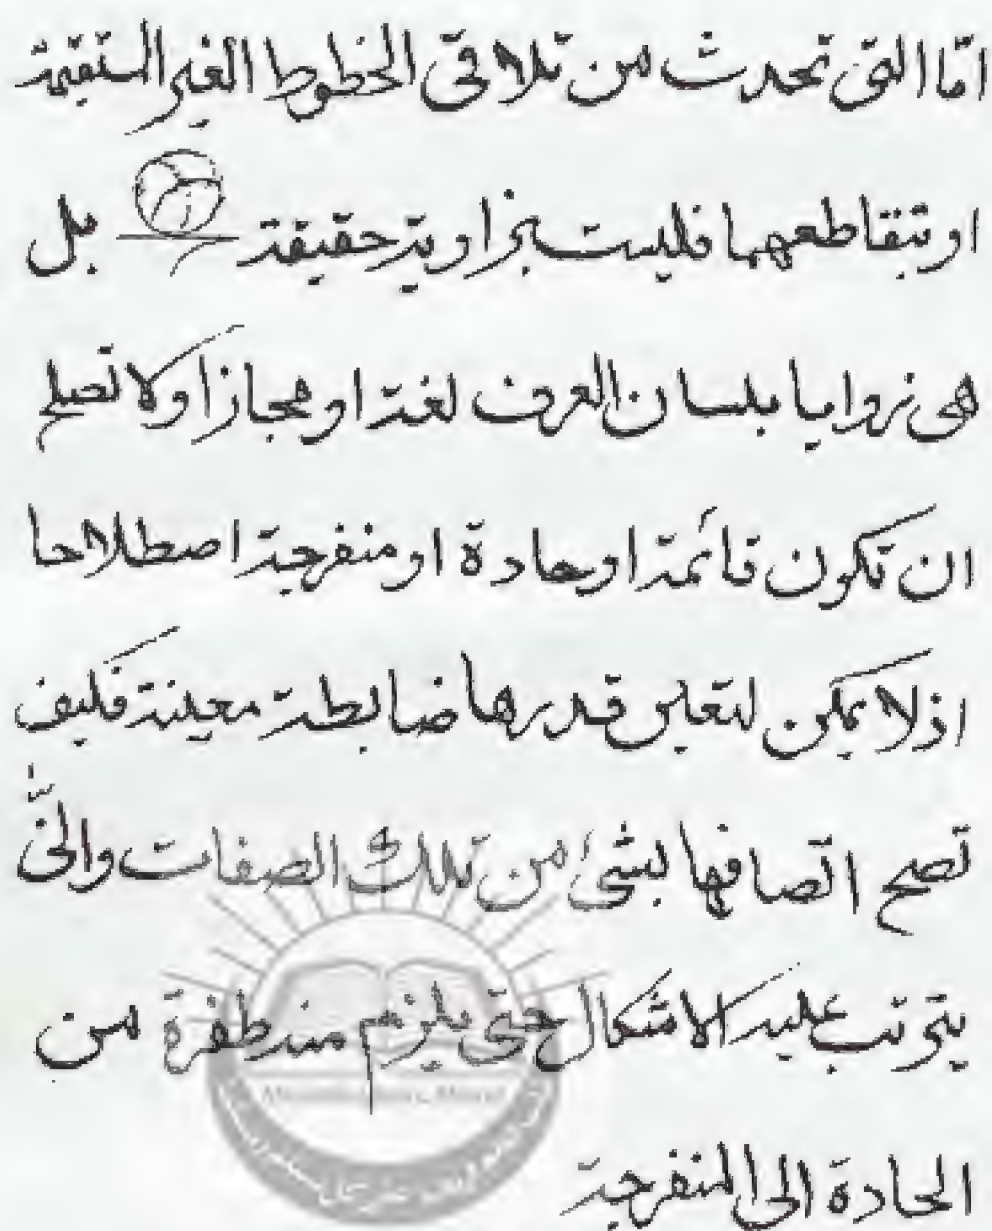 امّا التى تحدث من تلاقى الخطوط الغير المستقيمة
او تتقاطعهما فليست بزاوية حقيقة بل
هى زوايا بلسان العرف لغة او مجازاً ولا تصلح
ان تكون قائمة او حادة او منفرجة اصطلاحا
اذ لا يمكن لتعين قدرها ضابطة معينة فكيف
تصح اتصافها بشئ من تلك الصفات
يترتب عليه الاشكال حتى يلزم منه طفرة من
الحادة الى المنفرجة